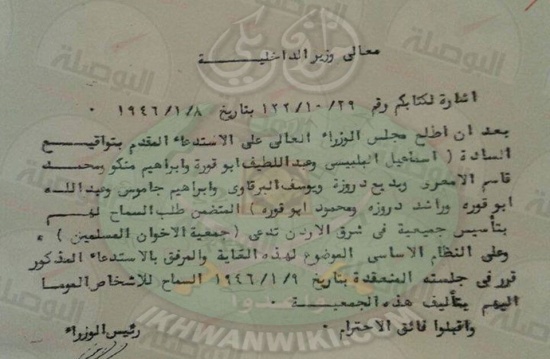 معالي وزير الداخلية
اشارة لكتابكم رقم ١٢٢/١٠/٢٩ بتاريخ ١٩٤٦/١/٨ ٠
بعد ان اطلع مجلس الوزراء العالي على الاستدعاء المقدم بتواقيع
السادة ( اسماعيل البلبيسي وعبد اللطيف ابو قورة وابراهيم منكو ومحمد
قاسم الامعري وبديع دروزة ويوسف البرقاوي وابراهيم جاموس وعبد الله
ابو قوره وراشد دروزه ومحمود ابو قوره ) المتضمن طلب السماح لهم
بتأسيس جمعية في شرق الاردن تدعى ( جمعية الاخوان المسلمين )
وعلى النظام الاساسي الموضوع لهذه الغاية والمرفق بالاستدعاء المذكور
قرر في جلسته المنعقدة بتاريخ ١٩٤٦/١/٩ السماح للاشخاص الموما
اليهم بتأليف هذه الجمعية ٠
واقبلوا فائق الاحترام ٠
رئيس الوزراء
البوصلة
IKHWANWIKI.COM